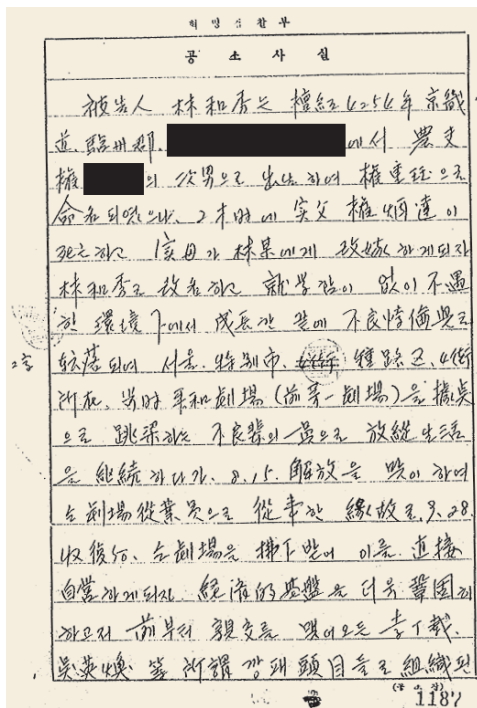 혁명검찰부
공소사실
被告人 林和秀는 檀紀 4254年 京畿
道 驪州郡 에서 農夫
權 의 次男으로 出生하여 權重珏으로
命名되였으나, 2才時에 実父 權炳達이
死亡하고 該母가 林某에게 改嫁하게되자
林和秀로 改名하고 就学함이 없이 不遇
한 環境下에서 成長한 끝에 不良悖倫児로
転落되여 서울 特別市 鍾路区 4街
所在, 当時 平和劇場 (前第一劇場)을 據点
으로 跳梁하는 不良輩의 一員으로 放縱生活
을 継続하다가, 8.15. 解放을 맞이하여
仝劇場従業員으로 從事한 緣故로 9.28.
收復后, 仝劇場을 拂下받어 이를 直接
自営하게되자, 経済的基盤을 더욱 鞏固히
하고저 前부터 親交를 맺어오든 李丁載,
吳英煥 等 所謂 깡패頭目들로 組織된
(공소장)
1187